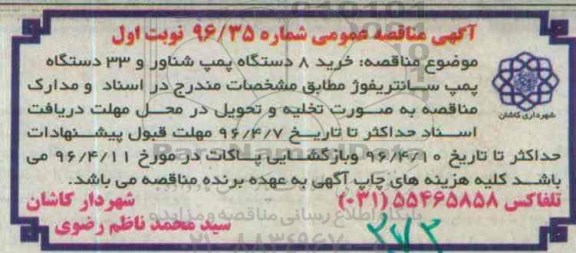 آگهی مناقصه عمومی شماره ۹۶/۳۵ نوبت اول
موضوع مناقصه: خرید ۸ دستگاه پمپ شناور و ۳۳ دستگاه
پمپ سانتریفوژ مطابق مشخصات مندرج در اسناد و مدارک
مناقصه به صورت تخلیه و تحویل در محل مهلت دریافت
اسناد حداکثر تا تاریخ ۹۶/۴/۷ مهلت قبول پیشنهادات
حداکثر تا تاریخ ۹۶/۴/۱۰ وبازگشایی پاکات در مورخ ۹۶/۴/۱۱ می
باشد کلیه هزینه های چاپ آگهی به عهده برنده مناقصه می باشد.
تلفاکس ۵۵۴۶۵۸۵۸ (۰۳۱)
شهردار کاشان
سید محمد ناظم رضوی
شهرداری کاشان
پایگاه اطلاع رسانی مناقصه و مزایده
۲۷۳